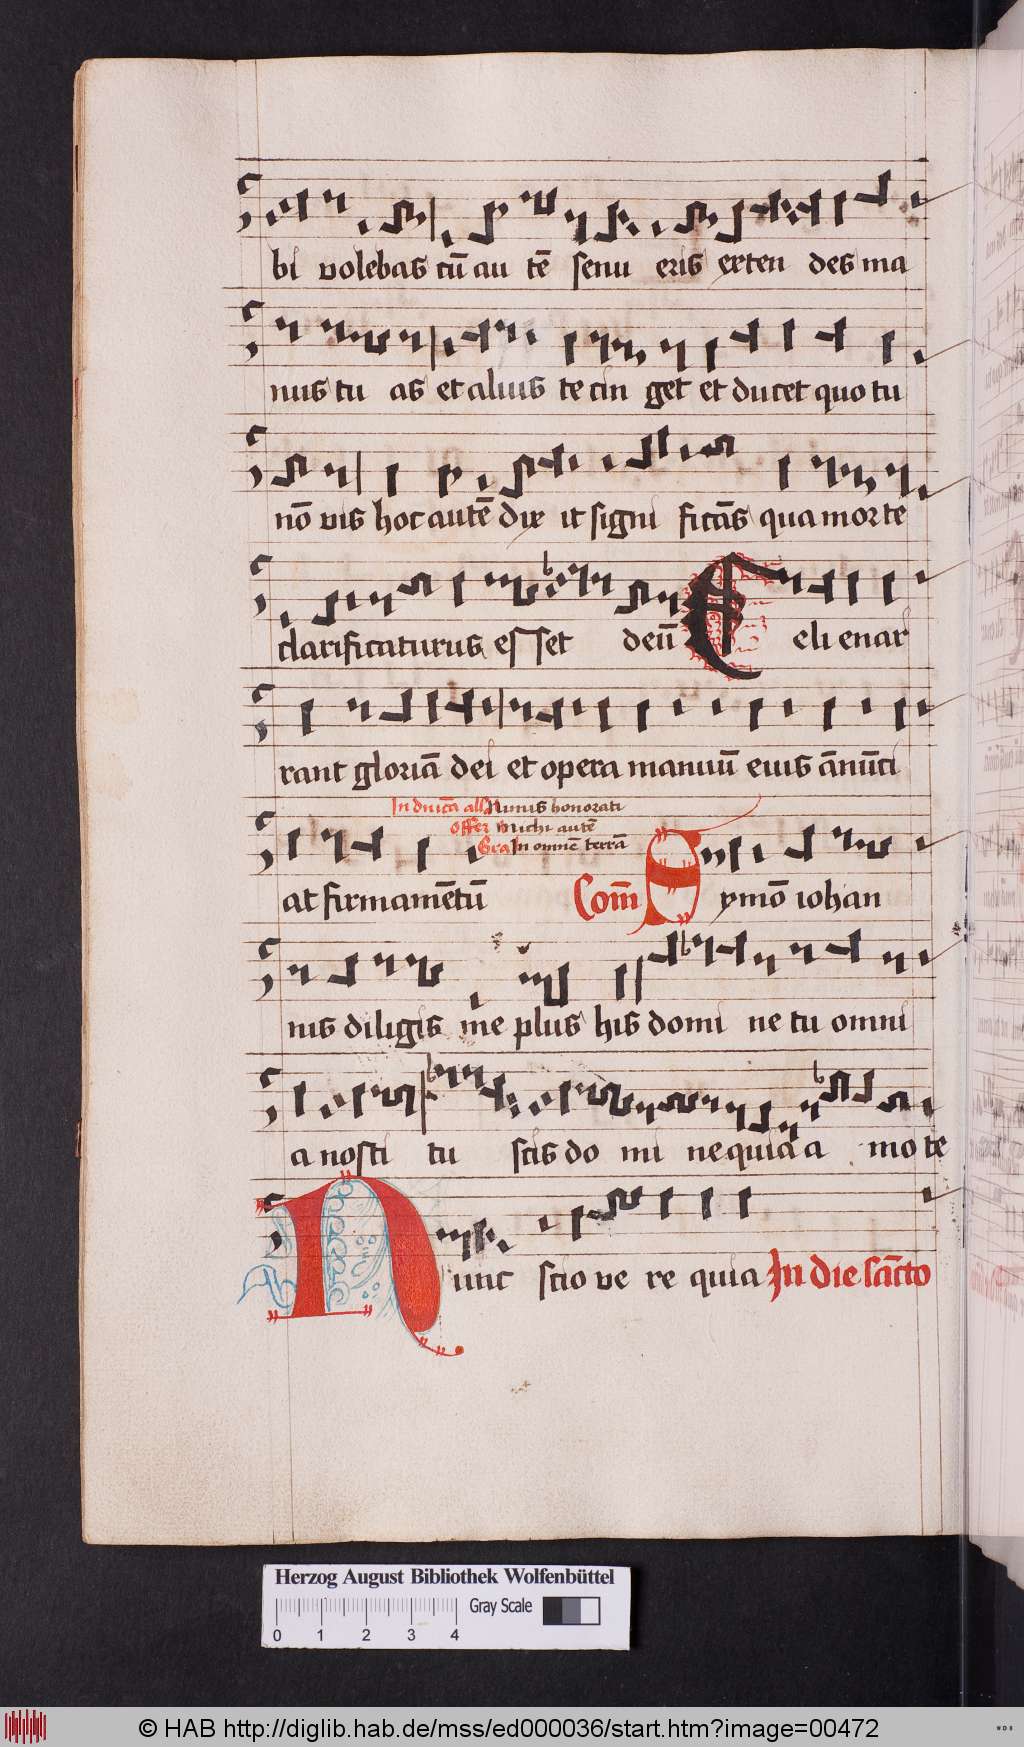 bi volebas cū au tē senu eris exten des ma
nus tu as et alius te cin get et ducet quo tu
nō vis hoc autē dix it signi ficās qua morte
clarificaturus es set deū Celi enar
rant gloriā dei et opera manuū eius ānūci
In dn̄ica all̄a Nimis honorati
offer Michi autē
Gra In omnē terrā
at firmamētū Com̄ Symō iohan
nis diligis me plus his domi ne tu omni
a nosti tu scis do mi ne quia a mo te
Nunc scio ve re quia In die sāncto
Herzog August Bibliothek Wolfenbüttel
Gray Scale
0 1 2 3 4
© HAB http://diglib.hab.de/mss/ed000036/start.htm?image=00472